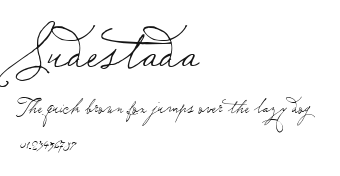 Sudestada
The quick brown fox jumps over the lazy dog